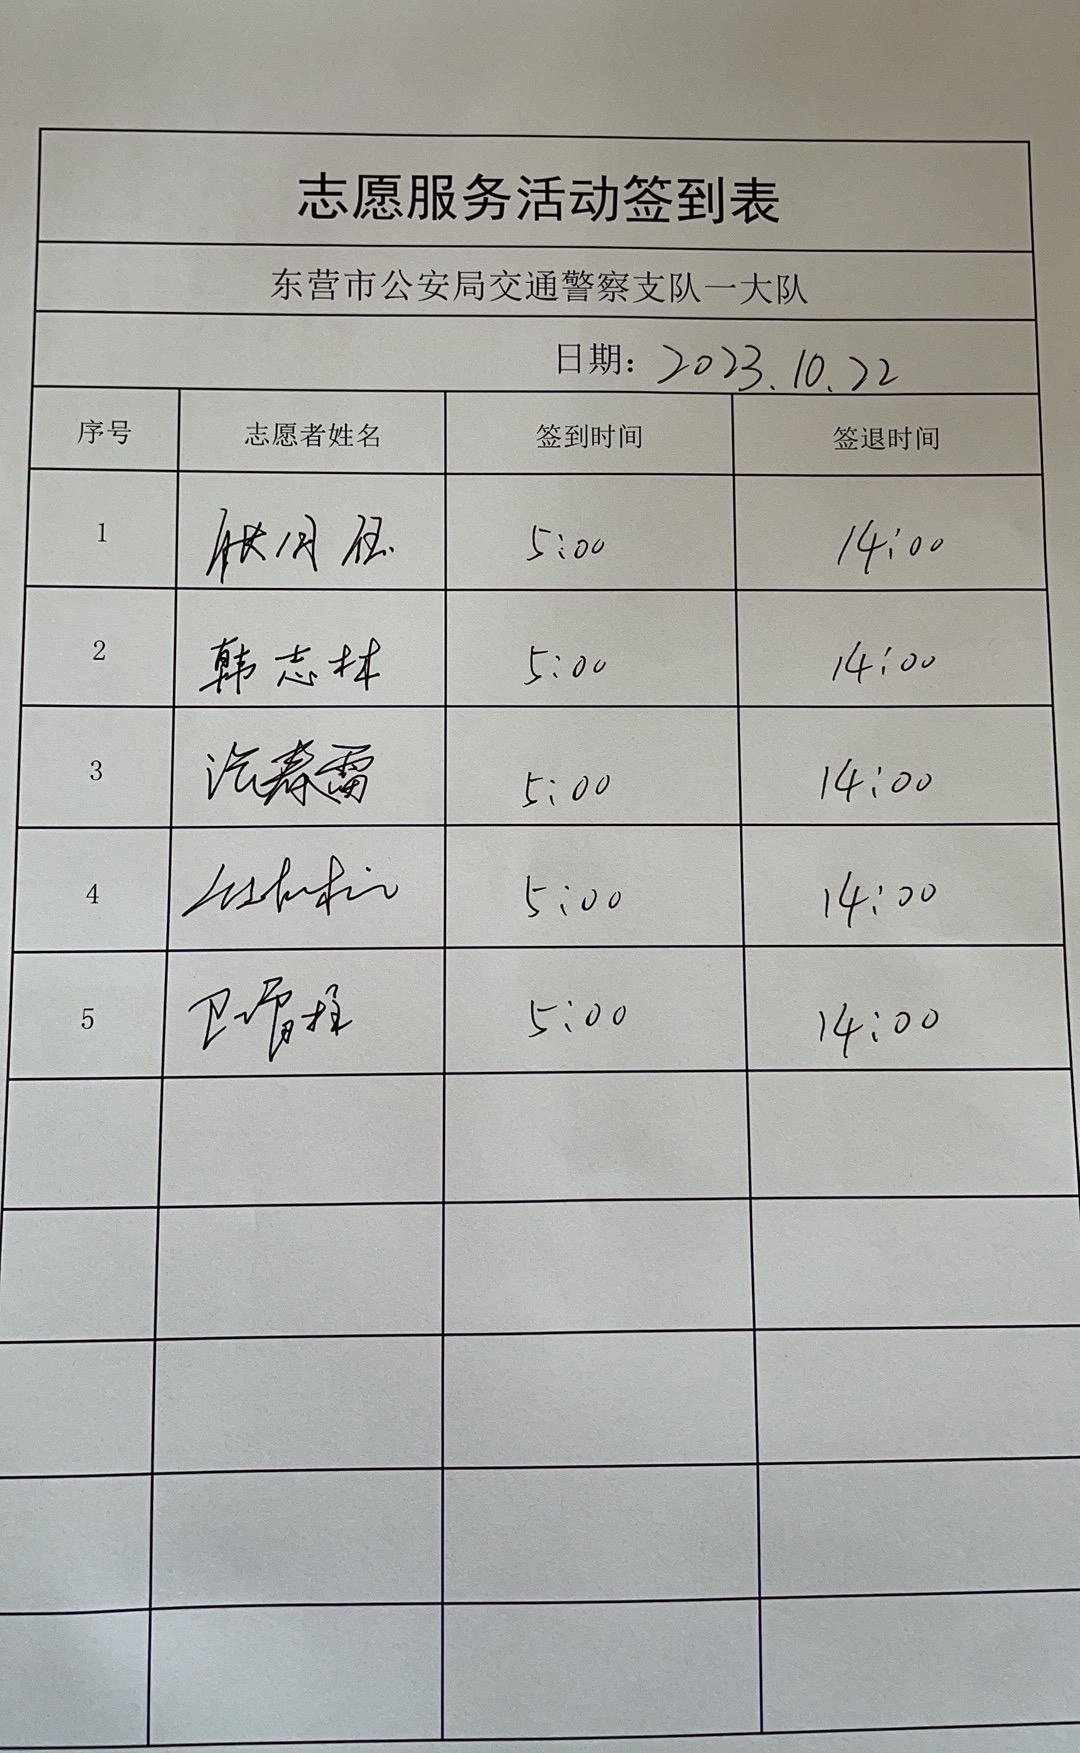 志愿服务活动签到表
东营市公安局交通警察支队一大队
日期：2023.10.22
序号 志愿者姓名 签到时间 签退时间
1 5:00 14:00
2 韩志林 5:00 14:00
3 5:00 14:00
4 5:00 14:00
5 5:00 14:00